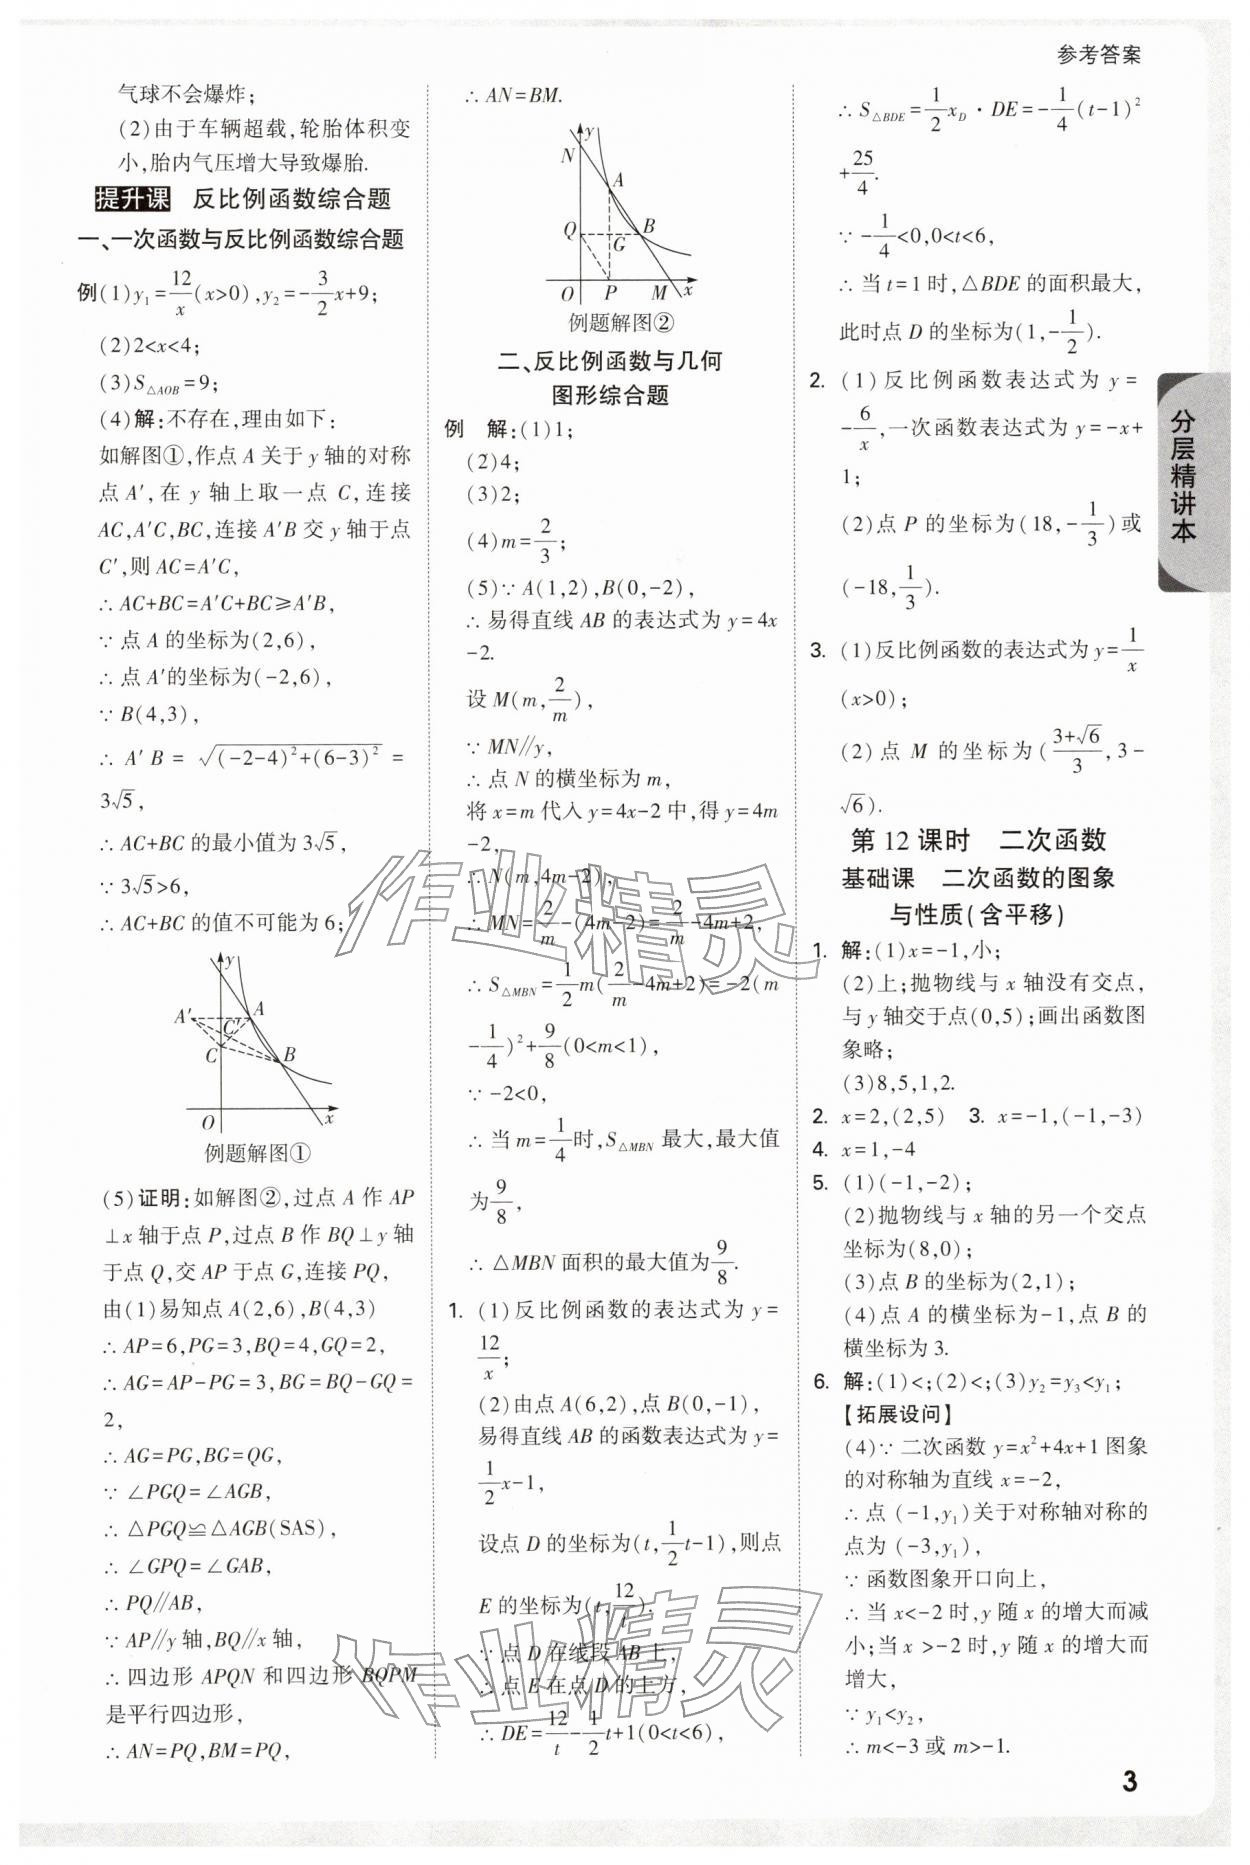 参考答案
气球不会爆炸;
(2)由于车辆超载,轮胎体积变
小,胎内气压增大导致爆胎.
提升课 反比例函数综合题
一、一次函数与反比例函数综合题
例(1)y₁=12/x(x>0),y₂=-3/2x+9;
(2)2<x<4;
(3)S△AOB=9;
(4)解:不存在,理由如下:
如解图①,作点A关于y轴的对称
点A′,在y轴上取一点C,连接
AC,A′C,BC,连接A′B交y轴于点
C′,则AC=A′C,
∴AC+BC=A′C+BC≥A′B,
∵点A的坐标为(2,6),
∴点A′的坐标为(-2,6),
∵B(4,3),
∴A′B=√((-2-4)²+(6-3)²)=
3√5,
∴AC+BC的最小值为3√5,
∵3√5>6,
∴AC+BC的值不可能为6;
y
A′
C′
A
C
B
O
x
例题解图①
(5)证明:如解图②,过点A作AP
⊥x轴于点P,过点B作BQ⊥y轴
于点Q,交AP于点G,连接PQ,
由(1)易知点A(2,6),B(4,3)
∴AP=6,PG=3,BQ=4,GQ=2,
∴AG=AP-PG=3,BG=BQ-GQ=
2,
∴AG=PG,BG=QG,
∵∠PGQ=∠AGB,
∴△PGQ≌△AGB(SAS),
∴∠GPQ=∠GAB,
∴PQ∥AB,
∵AP∥y轴,BQ∥x轴,
∴四边形APQN和四边形BQPM
是平行四边形,
∴AN=PQ,BM=PQ,
∴AN=BM.
y
N
A
Q
G
B
O
P
M
x
例题解图②
二、反比例函数与几何
图形综合题
例 解:(1)1;
(2)4;
(3)2;
(4)m=2/3;
(5)∵A(1,2),B(0,-2),
∴易得直线AB的表达式为y=4x
-2.
设M(m,2/m),
∵MN∥y,
∴点N的横坐标为m,
将x=m代入y=4x-2中,得y=4m
-2,
∴N(m,4m-2),
∴MN=2/m-(4m-2)=2/m-4m+2,
∴S△MBN=1/2m(2/m-4m+2)=-2(m
-1/4)²+9/8(0<m<1),
∵-2<0,
∴当m=1/4时,S△MBN最大,最大值
为9/8,
∴△MBN面积的最大值为9/8.
1. (1)反比例函数的表达式为y=
12/x;
(2)由点A(6,2),点B(0,-1),
易得直线AB的函数表达式为y=
1/2x-1,
设点D的坐标为(t,1/2t-1),则点
E的坐标为(t,12/t).
∵点D在线段AB上,
∴点E在点D的上方,
∴DE=12/t-1/2t+1(0<t<6),
∴S△BDE=1/2x_D·DE=-1/4(t-1)²
+25/4.
∵-1/4<0,0<t<6,
∴当t=1时,△BDE的面积最大,
此时点D的坐标为(1,-1/2).
2. (1)反比例函数表达式为y=
-6/x,一次函数表达式为y=-x+
1;
(2)点P的坐标为(18,-1/3)或
(-18,1/3).
3. (1)反比例函数的表达式为y=1/x
(x>0);
(2)点M的坐标为((3+√6)/3,3-
√6).
第12课时 二次函数
基础课 二次函数的图象
与性质(含平移)
1. 解:(1)x=-1,小;
(2)上;抛物线与x轴没有交点,
与y轴交于点(0,5);画出函数图
象略;
(3)8,5,1,2.
2. x=2,(2,5) 3. x=-1,(-1,-3)
4. x=1,-4
5. (1)(-1,-2);
(2)抛物线与x轴的另一个交点
坐标为(8,0);
(3)点B的坐标为(2,1);
(4)点A的横坐标为-1,点B的
横坐标为3.
6. 解:(1)<;(2)<;(3)y₂=y₃<y₁;
【拓展设问】
(4)∵二次函数y=x²+4x+1图象
的对称轴为直线x=-2,
∴点(-1,y₁)关于对称轴对称的
点为(-3,y₁),
∵函数图象开口向上,
∴当x<-2时,y随x的增大而减
小;当x>-2时,y随x的增大而
增大,
∵y₁<y₂,
∴m<-3或m>-1.
分层精讲本
3
作业精灵
作业精灵